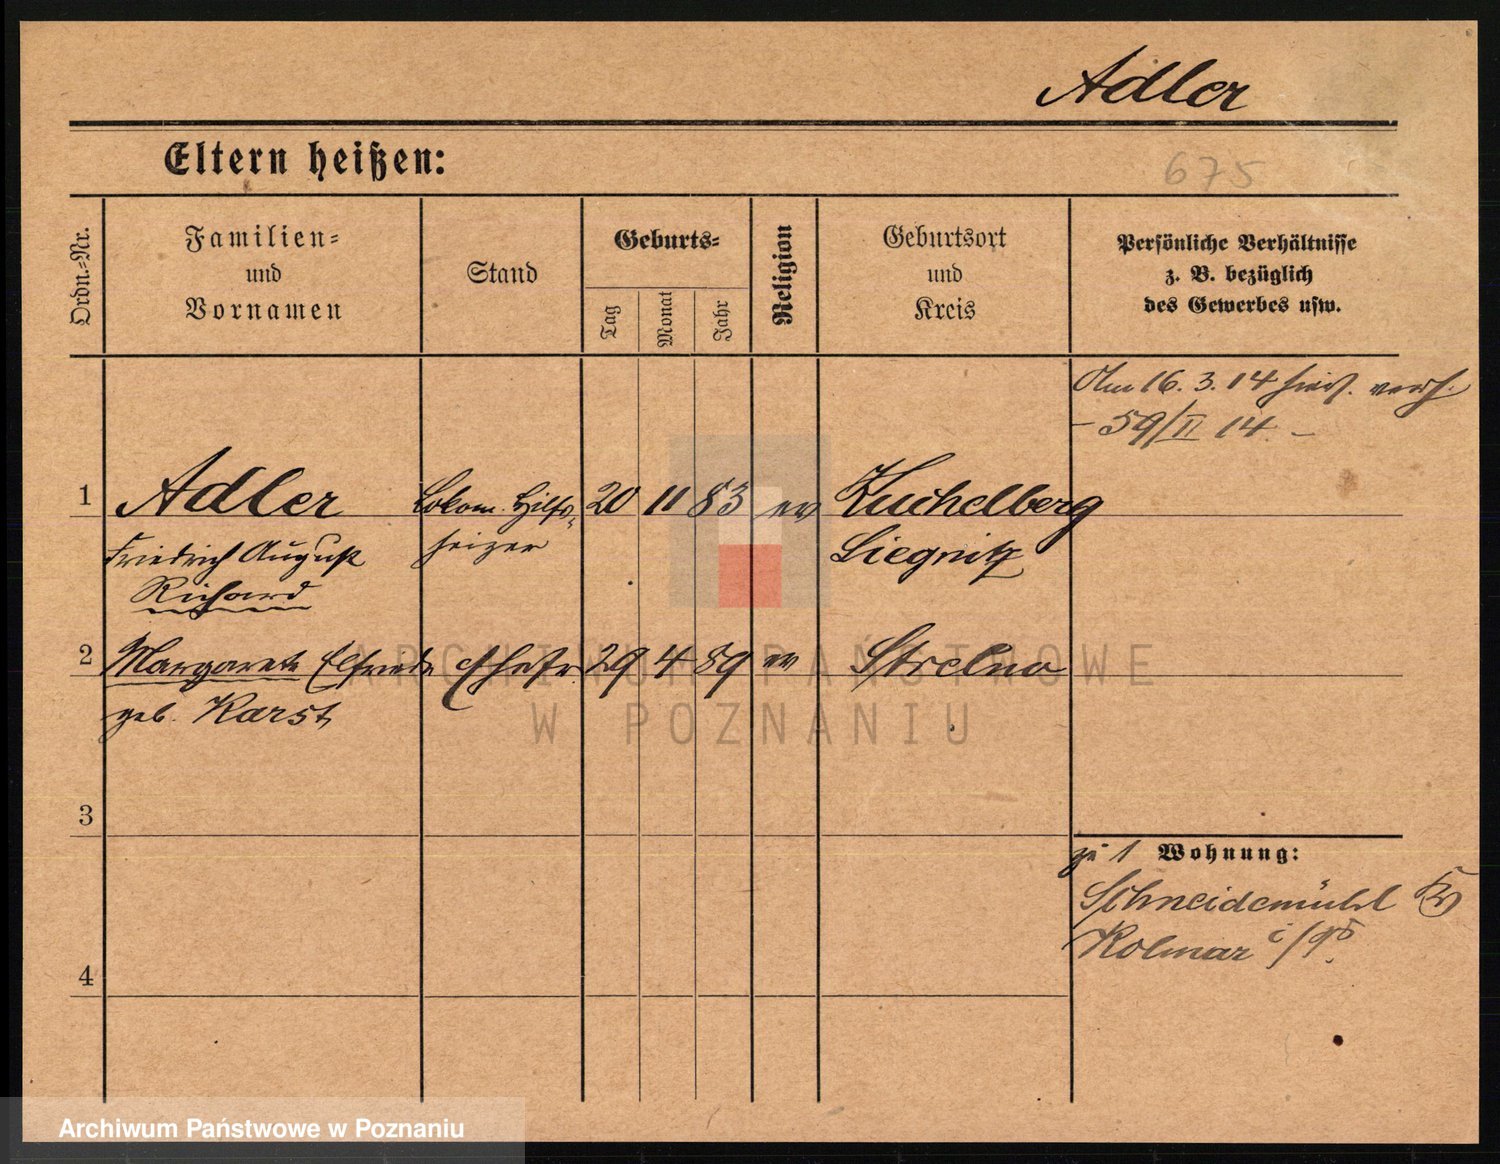 Adler
Eltern heißen:
675
Ordn.-Nr.
Familien-
und
Vornamen
Stand
Geburts-
Tag
Monat
Jahr
Religion
Geburtsort
und
Kreis
Persönliche Verhältnisse
z. B. bezüglich
des Gewerbes usw.
Am 16. 3. 14 hies. verh.
- 59/II 14. -
1 Adler Lokom. Hilfs- 20 11 83 ev Kuchelberg
Friedrich August heizer Liegnitz
Richard
2 Margarete Elfriede Ehefr. 29 4 89 ev Strelno
geb. Karst
3
zu 1 Wohnung:
Schneidemühl Kr
Kolmar i/
4
ARCHIWUM PAŃSTWOWE
W POZNANIU
Archiwum Państwowe w Poznaniu